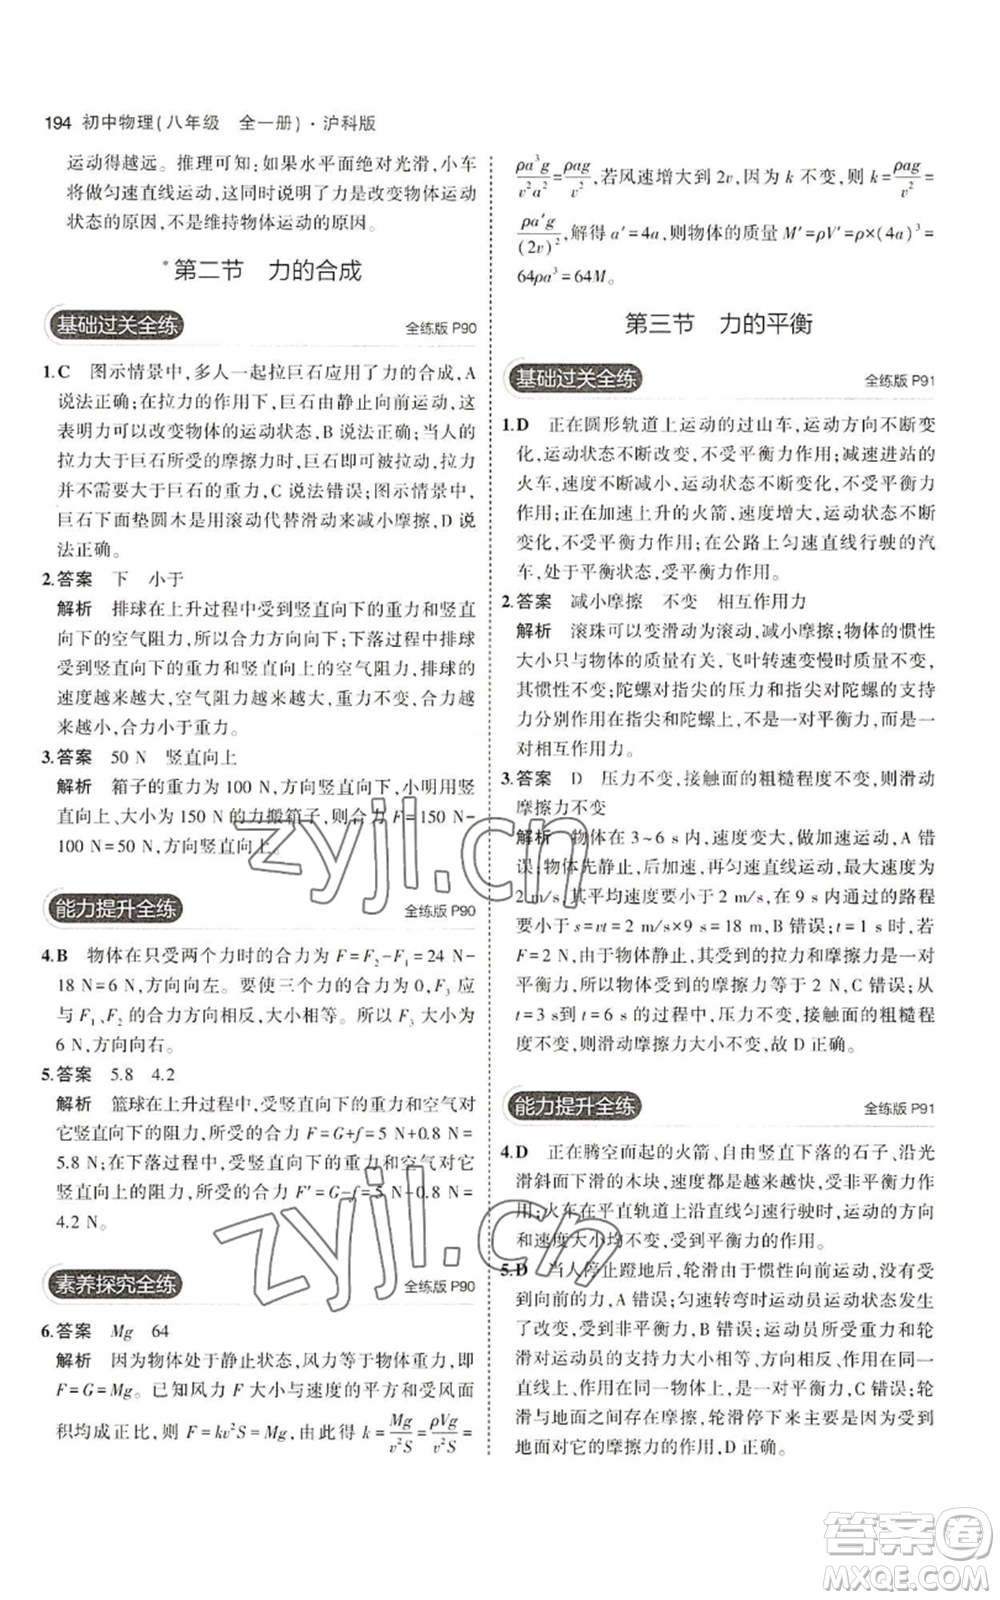 194 初中物理(八年级　全一册)·沪科版
运动得越远。推理可知:如果水平面绝对光滑,小车
将做匀速直线运动,这同时说明了力是改变物体运动
状态的原因,不是维持物体运动的原因。
*第二节　力的合成
基础过关全练　全练版 P90
1.C　图示情景中,多人一起拉巨石应用了力的合成,A
说法正确;在拉力的作用下,巨石由静止向前运动,这
表明力可以改变物体的运动状态,B 说法正确;当人的
拉力大于巨石所受的摩擦力时,巨石即可被拉动,拉力
并不需要大于巨石的重力,C 说法错误;图示情景中,
巨石下面垫圆木是用滚动代替滑动来减小摩擦,D 说
法正确。
2.答案　下　小于
解析　排球在上升过程中受到竖直向下的重力和竖直
向下的空气阻力,所以合力方向向下;下落过程中排球
受到竖直向下的重力和竖直向上的空气阻力,排球的
速度越来越大,空气阻力越来越大,重力不变,合力越
来越小,合力小于重力。
3.答案　50 N　竖直向上
解析　箱子的重力为 100 N,方向竖直向下,小明用竖
直向上、大小为 150 N 的力搬箱子,则合力 F=150 N-
100 N=50 N,方向竖直向上。
能力提升全练　全练版 P90
4.B　物体在只受两个力时的合力为 F=F₂-F₁=24 N-
18 N=6 N,方向向左。要使三个力的合力为 0,F₃ 应
与 F₁、F₂ 的合力方向相反,大小相等。所以 F₃ 大小为
6 N,方向向右。
5.答案　5.8　4.2
解析　篮球在上升过程中,受竖直向下的重力和空气对
它竖直向下的阻力,所受的合力 F=G+f=5 N+0.8 N=
5.8 N;在下落过程中,受竖直向下的重力和空气对它
竖直向上的阻力,所受的合力 F'=G-f=5 N-0.8 N=
4.2 N。
素养探究全练　全练版 P90
6.答案　Mg　64
解析　因为物体处于静止状态,风力等于物体重力,即
F=G=Mg。已知风力 F 大小与速度的平方和受风面
积均成正比,则 F=kv²S=Mg,由此可得 k=Mg/v²S=ρVg/v²S=
ρa³g/v²a²=ρag/v²,若风速增大到 2v,因为 k 不变,则 k=ρag/v²=
ρa'g/(2v)²,解得 a'=4a,则物体的质量 M'=ρV'=ρ×(4a)³=
64ρa³=64M。
第三节　力的平衡
基础过关全练　全练版 P91
1.D　正在圆形轨道上运动的过山车,运动方向不断变
化,运动状态不断改变,不受平衡力作用;减速进站的
火车,速度不断减小,运动状态不断变化,不受平衡力
作用;正在加速上升的火箭,速度增大,运动状态不断
变化,不受平衡力作用;在公路上匀速直线行驶的汽
车,处于平衡状态,受平衡力作用。
2.答案　减小摩擦　不变　相互作用力
解析　滚珠可以变滑动为滚动,减小摩擦;物体的惯性
大小只与物体的质量有关,飞叶转速变慢时质量不变,
其惯性不变;陀螺对指尖的压力和指尖对陀螺的支持
力分别作用在指尖和陀螺上,不是一对平衡力,而是一
对相互作用力。
3.答案　D　压力不变,接触面的粗糙程度不变,则滑动
摩擦力不变
解析　物体在 3~6 s 内,速度变大,做加速运动,A 错
误;物体先静止,后加速,再匀速直线运动,最大速度为
2 m/s,其平均速度要小于 2 m/s,在 9 s 内通过的路程
要小于 s=vt=2 m/s×9 s=18 m,B 错误;t=1 s 时,若
F=2 N,由于物体静止,其受到的推力和摩擦力是一对
平衡力,所受到的摩擦力大小等于 2 N,C 错误;从
t=3 s到 t=6 s 的过程中,压力不变,接触面的粗糙程
度不变,则滑动摩擦力大小不变,故 D 正确。
能力提升全练　全练版 P91
4.D　正在腾空而起的火箭、自由竖直下落的石子、沿光
滑斜面下滑的木块,速度都是越来越快,受非平衡力作
用;火车在平直轨道上沿直线匀速行驶时,运动的方向
和速度大小均不变,受到平衡力的作用。
5.D　当人停止蹬地后,轮滑由于惯性向前运动,不再受
到向前的力,A 错误;匀速转弯时运动员运动状态发生
了改变,受到非平衡力,B 错误;运动员对轮滑的力和轮
滑对运动员的支持力大小相等,方向相反,作用在同一
直线上,作用在不同物体上,是一对相互作用力,C 错误;轮
滑与地面之间存在摩擦,轮滑停下来主要是因为受到
地面对它的摩擦力的作用,D 正确。
zyjl.cn
zyjl.cn
答案圈
MXQE.COM